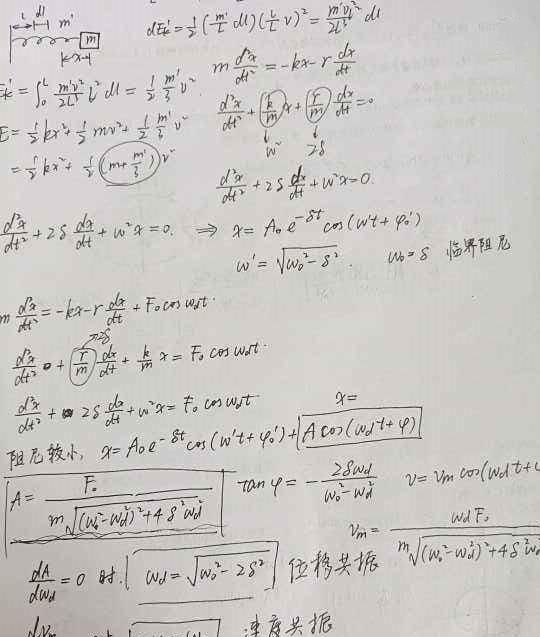 l dl m'
m
x
dE'k = 1/2 (m'/L dl)(l/L v)² = m'v²l²/2L³ dl
E'k = ∫₀ᴸ m'v²/2L³ l² dl = 1/2 m'/3 v²
m d²x/dt² = -kx - r dx/dt
E = 1/2 kx² + 1/2 mv² + 1/2 m'/3 v²
d²x/dt² + k/m x + r/m dx/dt = 0
= 1/2 kx² + 1/2 (m + m'/3) v²
w² 2δ
d²x/dt² + 2δ dx/dt + w²x = 0.
d²x/dt² + 2δ dx/dt + w²x = 0. ⇒ x = A₀ e^(-δt) cos(w't + φ₀')
w' = √(w₀² - δ²). w₀ = δ 临界阻尼
m d²x/dt² = -kx - r dx/dt + F₀ cos w_d t.
2δ
d²x/dt² + r/m dx/dt + k/m x = F₀ cos w_d t.
d²x/dt² + 2δ dx/dt + w²x = F₀ cos w_d t
x =
阻尼较小, x = A₀ e^(-δt) cos(w't + φ₀') + A cos(w_d t + φ)
A = F₀ / m√((w₀² - w_d²)² + 4δ²w_d²) tan φ = - 2δw_d / w₀² - w_d² v = v_m cos(w_d t +
v_m = w_d F₀ / m√((w₀² - w_d²)² + 4δ²w_d²
dA/dw_d = 0 时. w_d = √(w₀² - 2δ²) 位移共振
速度共振